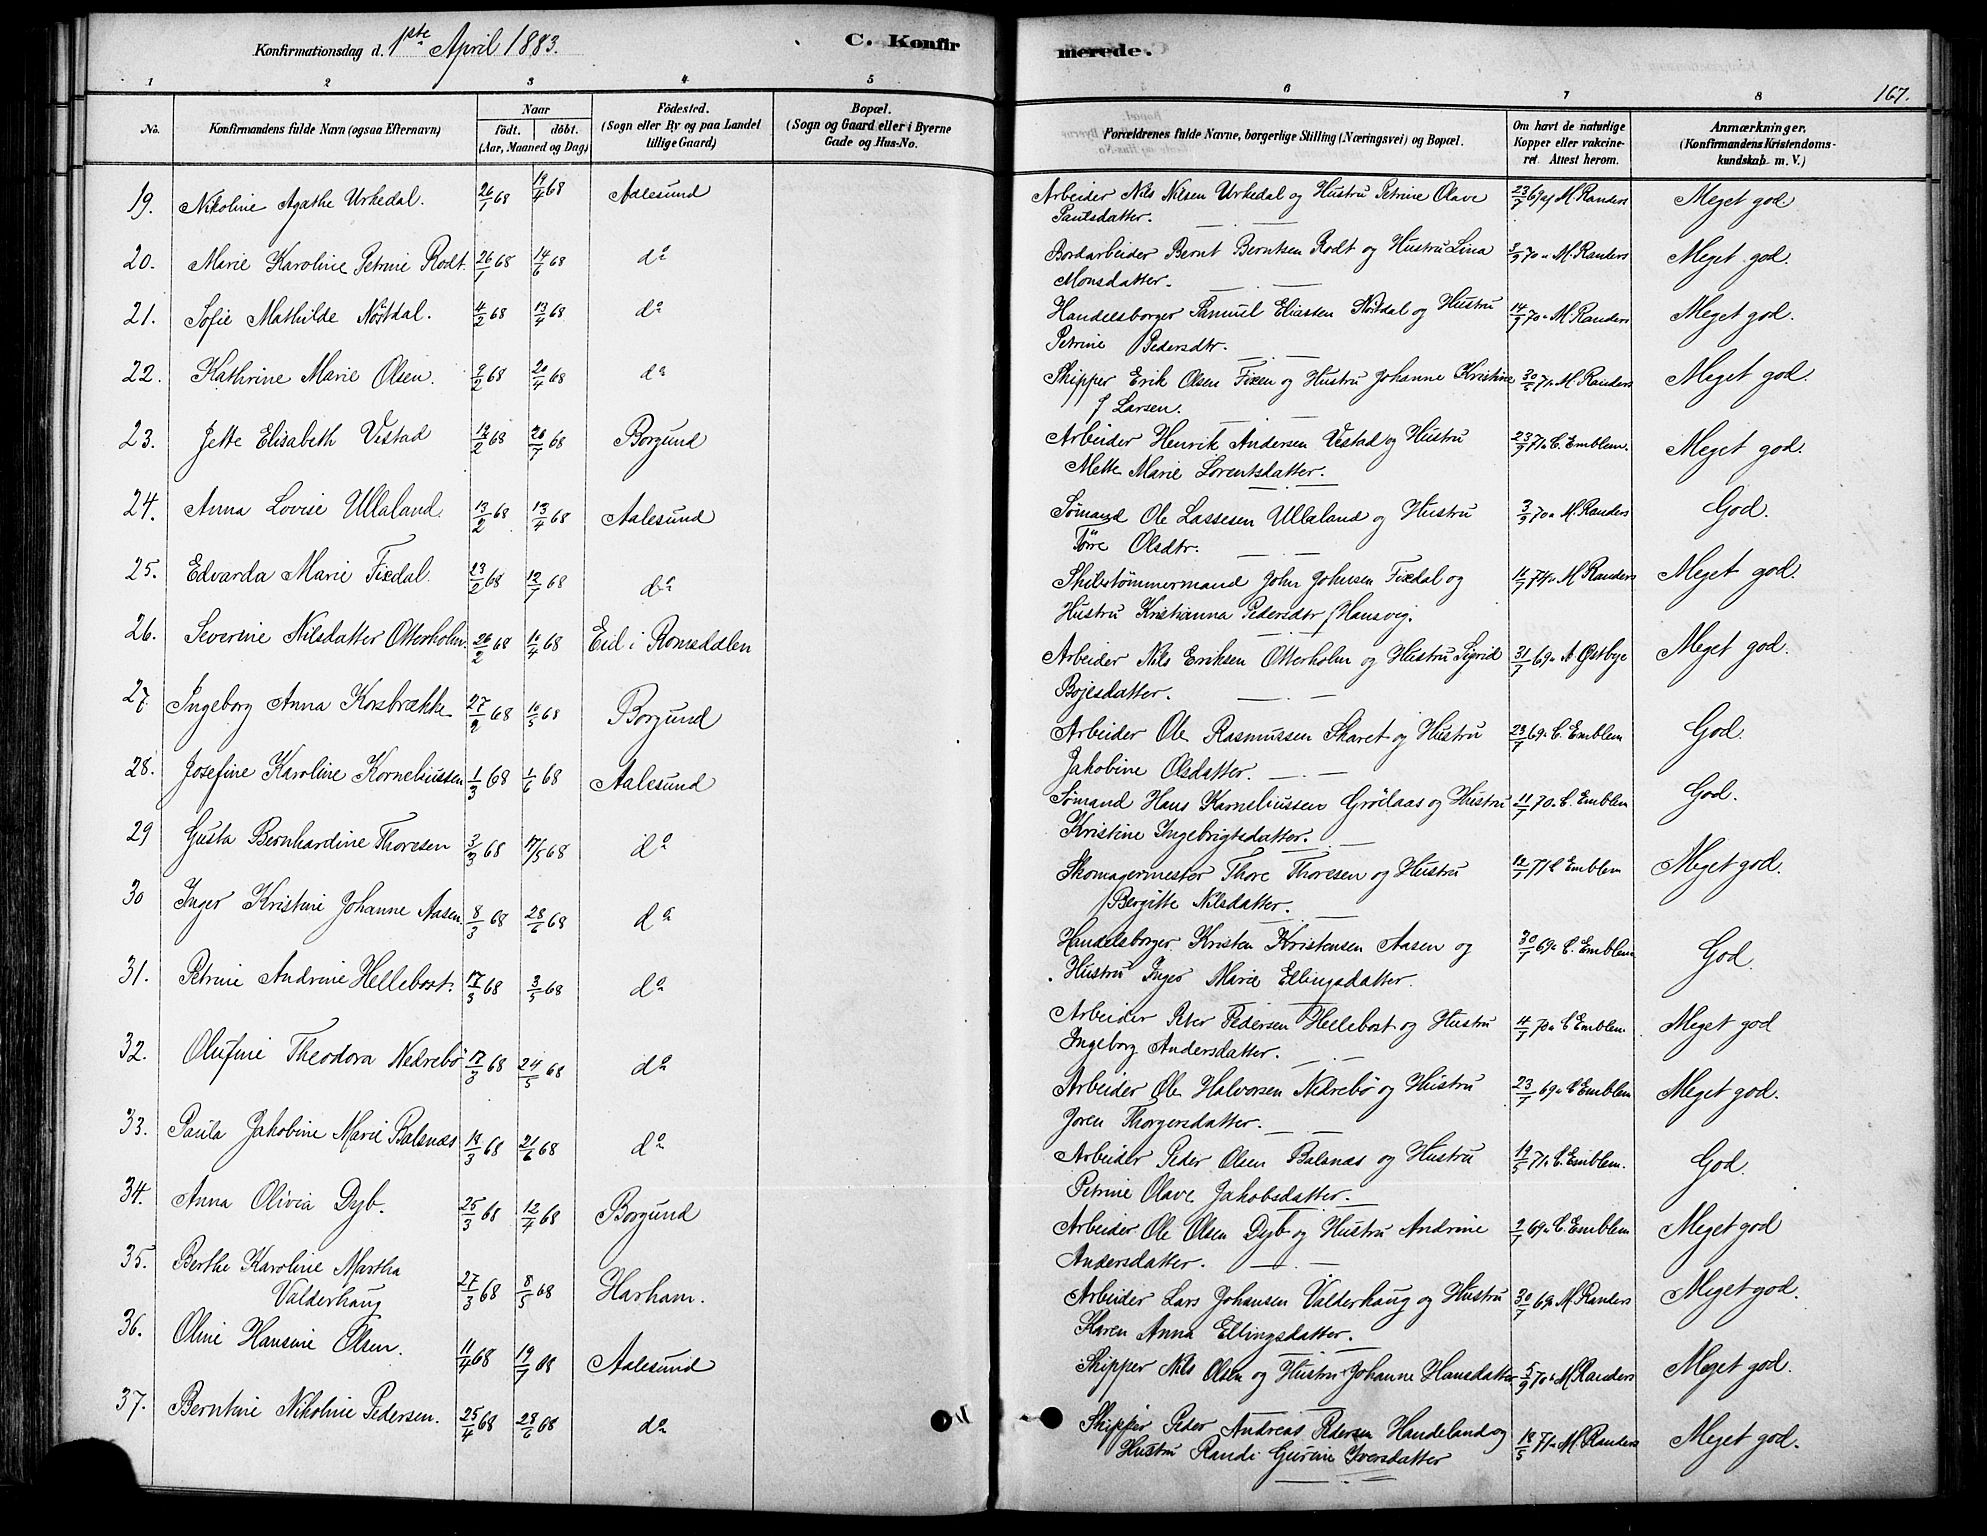 Konfirmationsdag d. 1ste April 1883.
C. Konfir
merede.
167.
1 2 3 4 5 6 7 8
No.
Konfirmandens fulde Navn (ogsaa Efternavn)
Naar
født. døbt.
(Aar, Maaned og Dag)
Fødested.
(Sogn eller By og paa Landet
tillige Gaard)
Bopæl.
(Sogn og Gaard eller i Byerne
Gade og Hus-No.
Forældrenes fulde Navne, borgerlige Stilling (Næringsvei) og Bopæl.
Om havt de naturlige
Kopper eller vakcine-
ret. Attest herom.
Anmærkninger,
(Konfirmandens Kristendoms-
kundskab m. V.)
19. Nikoline Agathe Urkedal. 26/1 68 19/4 68 Aalesund Arbeider Nils Nilsen Urkedal og Hustru Petrine Olave 23/7 69 af M. Randers Meget god
Paulsdatter.
20. Marie Karoline Petrine Rodt 26/1 68 14/6 68 do Bordarbeider Bernt Berntsen Rodt og Hustru Lina 3/9 70 " M. Randers Meget god.
Monsdatter.
21. Sofie Mathilde Nøstdal. 4/2 68 13/4 68 do Handelsborger Samuel Eliassen Nøstdal og Hustru 14/9 70 " M. Randers Meget god.
Petrine Pedersdtr.
22. Kathrine Marie Olsen. 9/2 68 20/4 68 do Skipper Erik Olsen Fixen og Hustru Johanne Kristine 30/5 71 " M. Randers Meget god.
f Larsen.
23. Jette Elisabeth Vestad 12/2 68 26/7 68 Borgund Arbeider Henrik Andersen Vestad og Hustru 23/9 71 " C. Emblem. Meget god.
Mette Marie Lorentsdatter.
24. Anna Lovise Ullaland. 13/2 68 13/4 68 Aalesund Sømand Ole Lassesen Ullaland og Hustru 3/9 70 " M. Randers God.
Olsdtr.
25. Edvarda Marie Fixdal. 23/2 68 12/7 68 do Skibstømmermand John Johnsen Fixdal og 11/7 74 " M Randers Meget god.
Hustru Kristianna Pedersdtr f Hansvig.
26. Severine Nilsdatter Otterholm. 26/2 68 10/4 68 Eid i Romsdalen Arbeider Nils Eriksen Otterholm og Hustru Sigrid 31/7 69 " A. Østbye Meget god.
Bojesdatter.
27. Ingeborg Anna Korsbrække 27/2 68 10/5 68 Borgund Arbeider Ole Rasmussen Skaret og Hustru 23/7 69 " C. Emblem God.
Jakobine Olsdatter.
28. Josefine Karoline Korneliussen 1/3 68 1/6 68 Aalesund Sømand Hans Korneliussen Grödaas og Hustru 11/7 70 " C. Emblem God.
Kristine Ingebrigtsdatter.
29 Gusta Bernhardine Thoresen 3/3 68 17/5 68 do Skomagermester Thore Thoresen og Hustru 12/7 71 " C Emblem Meget god.
Bergitte Nilsdatter.
30 Inger Kristine Johanne Aasen 8/3 68 28/6 68 do Handelsborger Kristen Kristensen Aasen og 30/7 69 " C. Emblem God.
Hustru Inger Marie Ellingsdatter.
31. Petrine Andrine Hellebost. 17/3 68 3/5 68 do Arbeider Peter Pedersen Hellebost og Hustru 4/7 70 " C Emblem Meget god
Ingeborg Andersdatter.
32. Olufine Theodora Nedrebö 17/3 68 24/5 68 do Arbeider Ole Halvorsen Nedrebö og Hustru 23/7 69 " C Emblem Meget god.
Joren Thorgersdatter.
33. Paula Jakobine Marie Balsnæs 19/3 68 21/6 68 do Arbeider Peder Olsen Balsnæs og Hustru 19/5 71 " C. Emblem. God.
Petrine Olave Jakobsdatter.
34. Anna Olivia Dyb. 25/3 68 12/4 68 Borgund Arbeider Ole Olsen Dyb og Hustru Andrine 2/7 69 " C. Emblem Meget god
Andersdatter.
35. Berthe Karoline Martha
Valderhaug 27/3 68 8/5 68 Harham. Arbeider Lars Johansen Valderhaug og Hustru 30/7 69 " M Randers Meget god.
Karen Anna Ellingsdatter.
36. Oline Hansine Olsen. 11/4 68 19/7 68 Aalesund Skipper Nils Olsen og Hustru Johanne Hansdatter 5/9 70 " M Randers Meget god.
37. Berntine Nikoline Pedersen. 25/4 68 28/6 68 do Skipper Peder Andreas Pedersen Handeland og 18/5 71 " M. Randers Meget god.
Hustru Randi Gurine Iversdatter